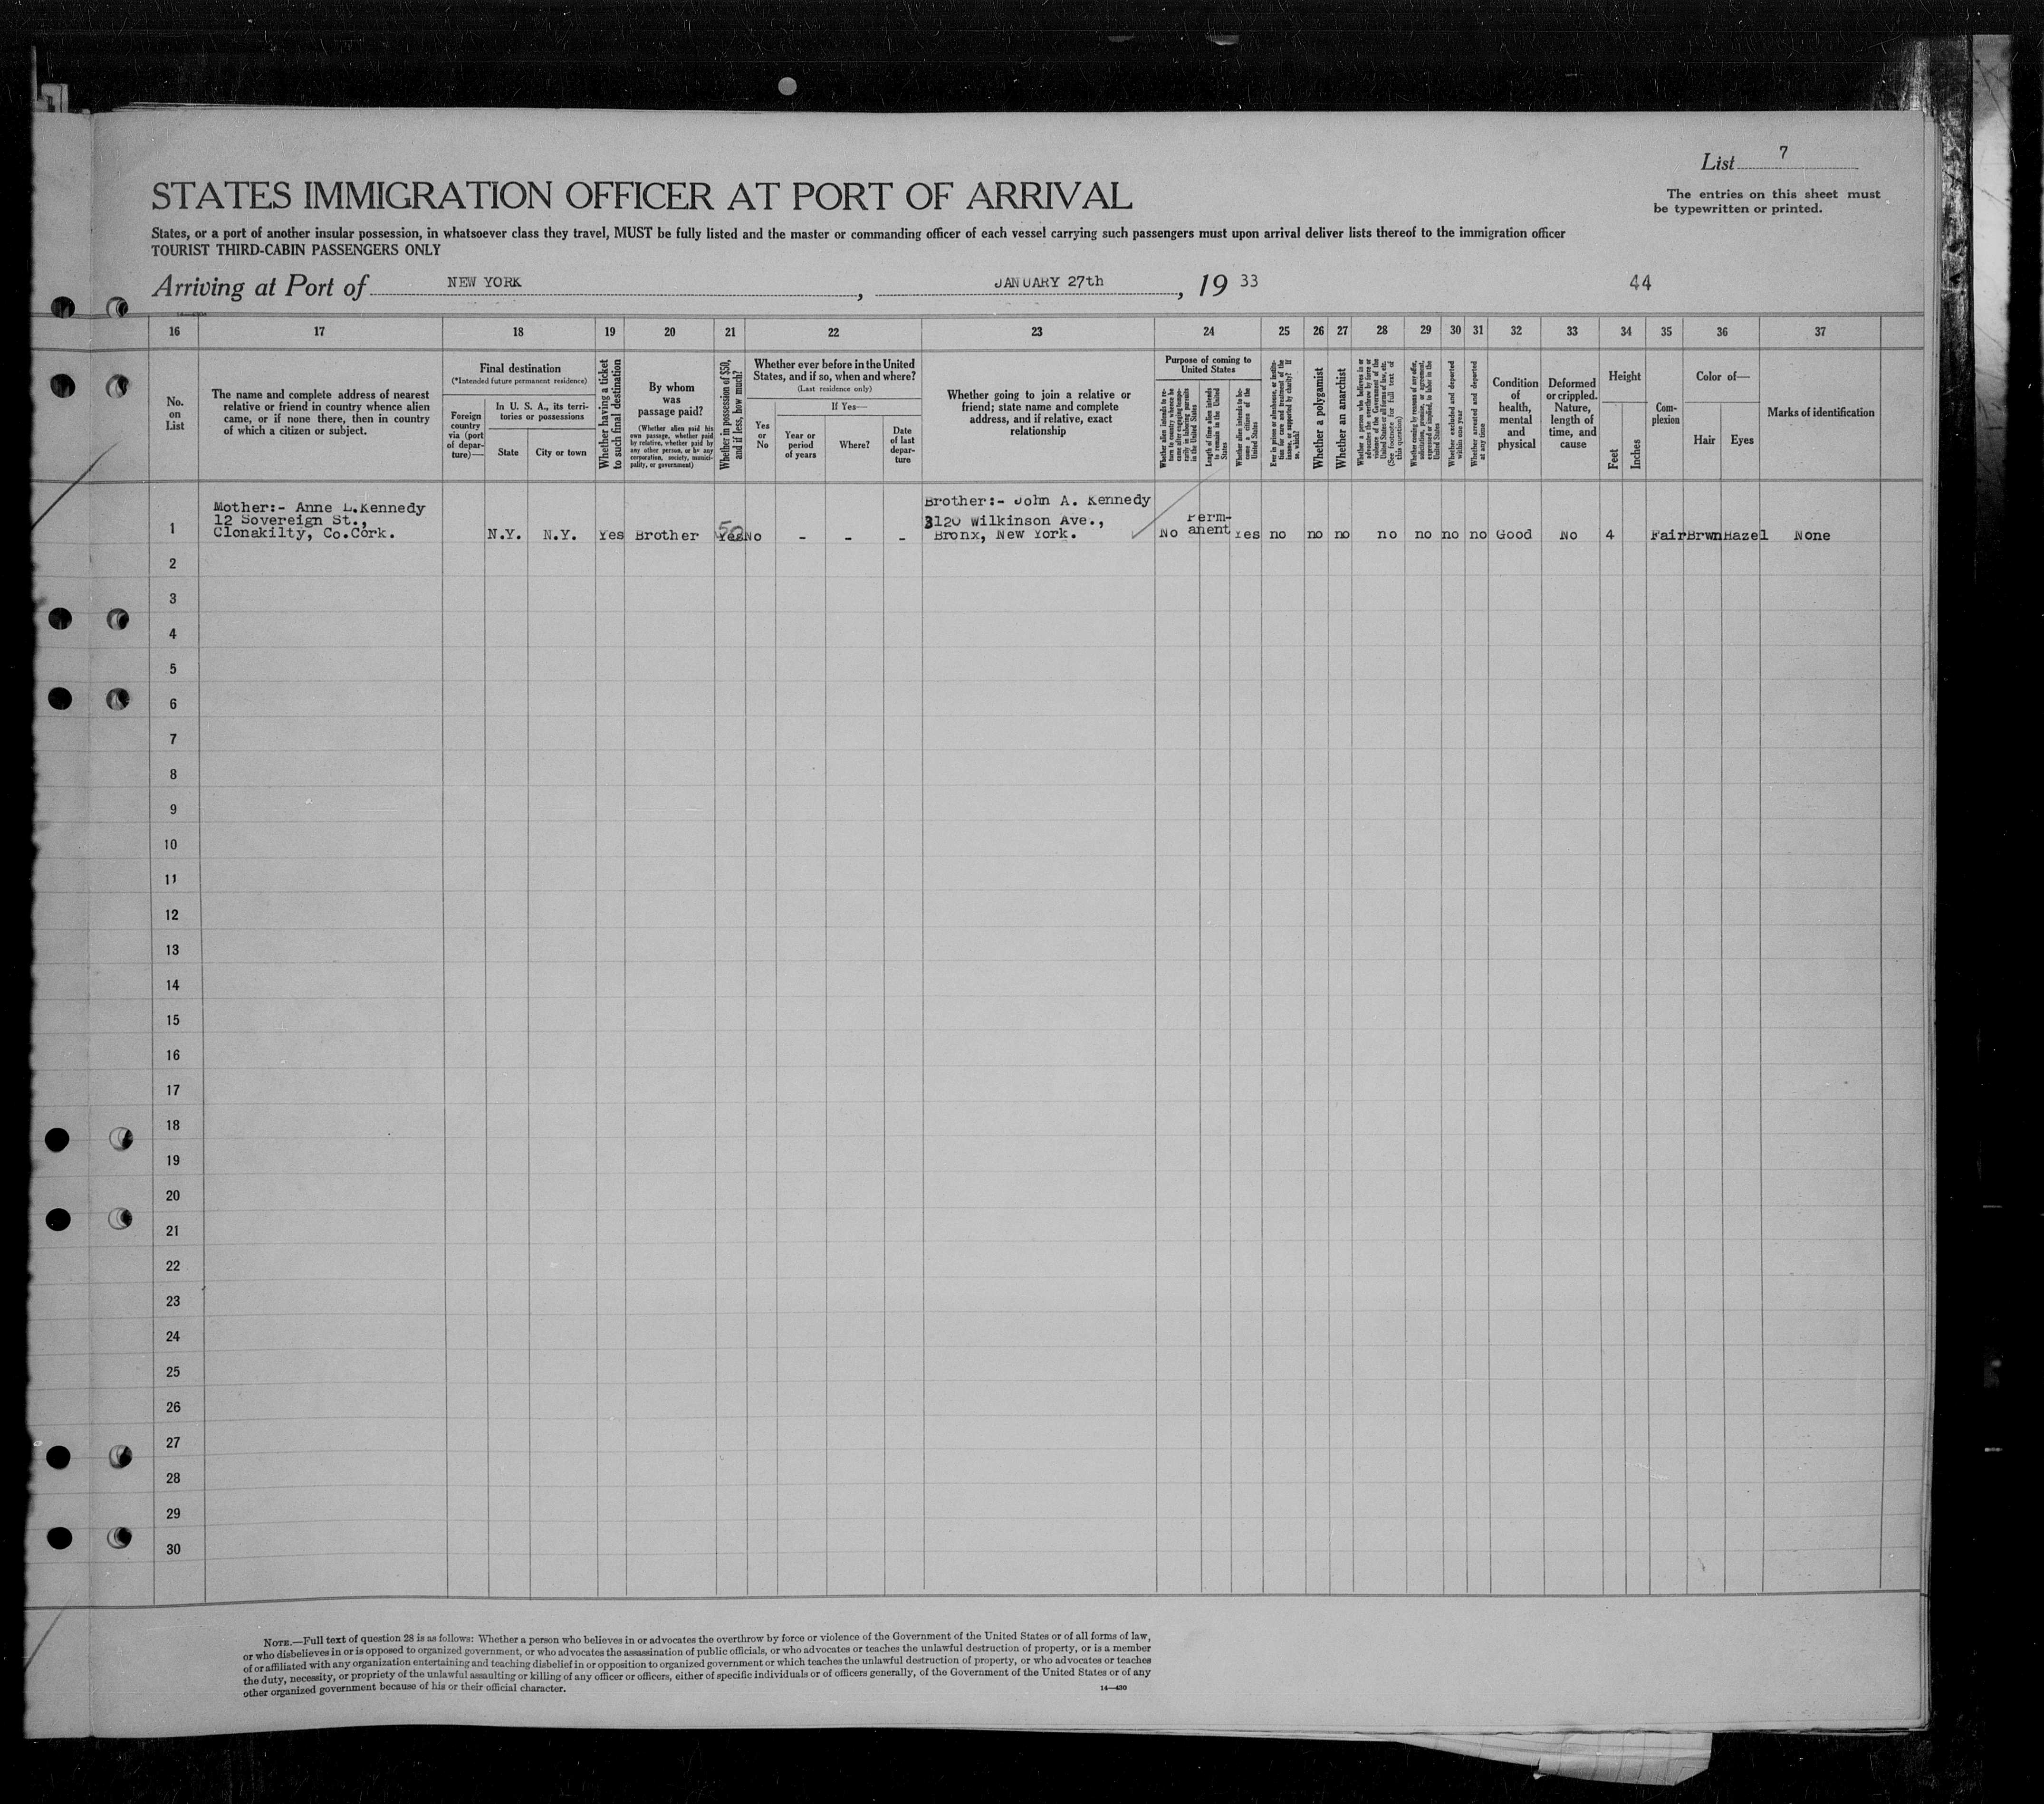 List 7
The entries on this sheet must
be typewritten or printed.
STATES IMMIGRATION OFFICER AT PORT OF ARRIVAL
States, or a port of another insular possession, in whatsoever class they travel, MUST be fully listed and the master or commanding officer of each vessel carrying such passengers must upon arrival deliver lists thereof to the immigration officer
TOURIST THIRD-CABIN PASSENGERS ONLY
Arriving at Port of NEW YORK, JANUARY 27th, 19 33
44
16 17 18 19 20 21 22 23 24 25 26 27 28 29 30 31 32 33 34 35 36 37
No.
on
List
The name and complete address of nearest
relative or friend in country whence alien
came, or if none there, then in country
of which a citizen or subject.
Final destination
(*Intended future permanent residence)
Foreign
country
via (port
of depar-
ture)—
In U. S. A., its terri-
tories or possessions
State
City or town
Whether having a ticket
to such final destination
By whom
was
passage paid?
(Whether alien paid his
own passage, whether paid
by relative, whether paid by
any other person, or by any
corporation, society, munici-
pality, or government)
Whether in possession of $50,
and if less, how much?
Whether ever before in the United
States, and if so, when and where?
(Last residence only)
Yes
or
No
If Yes—
Year or
period
of years
Where?
Date
of last
depar-
ture
Whether going to join a relative or
friend; state name and complete
address, and if relative, exact
relationship
Purpose of coming to
United States
Whether alien intends to re-
turn to country whence he
came after engaging tempo-
rarily in laboring pursuits
in the United States
Length of time alien intends
to remain in the United
States
Whether alien intends to be-
come a citizen of the
United States
Ever in prison or almshouse, or institu-
tion for care and treatment of the
insane, or supported by charity? If
so, which?
Whether a polygamist
Whether an anarchist
Whether a person who believes in or
advocates the overthrow by force or
violence of the Government of the
United States or all forms of law, etc.
(See footnote for full text of
this question)
Whether coming by reason of any offer,
solicitation, promise, or agreement,
expressed or implied, to labor in the
United States
Whether excluded and deported
within one year
Whether arrested and deported
at any time
Condition
of
health,
mental
and
physical
Deformed
or crippled.
Nature,
length of
time, and
cause
Height
Feet
Inches
Com-
plexion
Color of—
Hair
Eyes
Marks of identification
Mother:- Anne L.Kennedy
12 Sovereign St.,
Clonakilty, Co.Cork.
Brother:- John A. Kennedy
3120 Wilkinson Ave.,
Bronx, New York.
1 N.Y. N.Y. Yes Brother 50 Yes No - - - No Perm-
anent Yes no no no no no no no Good No 4 Fair Brwn Hazel None
2
3
4
5
6
7
8
9
10
11
12
13
14
15
16
17
18
19
20
21
22
23
24
25
26
27
28
29
30
NOTE.—Full text of question 28 is as follows: Whether a person who believes in or advocates the overthrow by force or violence of the Government of the United States or of all forms of law,
or who disbelieves in or is opposed to organized government, or who advocates the assassination of public officials, or who advocates or teaches the unlawful destruction of property, or is a member
of or affiliated with any organization entertaining and teaching disbelief in or opposition to organized government or which teaches the unlawful destruction of property, or who advocates or teaches
the duty, necessity, or propriety of the unlawful assaulting or killing of any officer or officers, either of specific individuals or of officers generally, of the Government of the United States or of any
other organized government because of his or their official character.
14—430